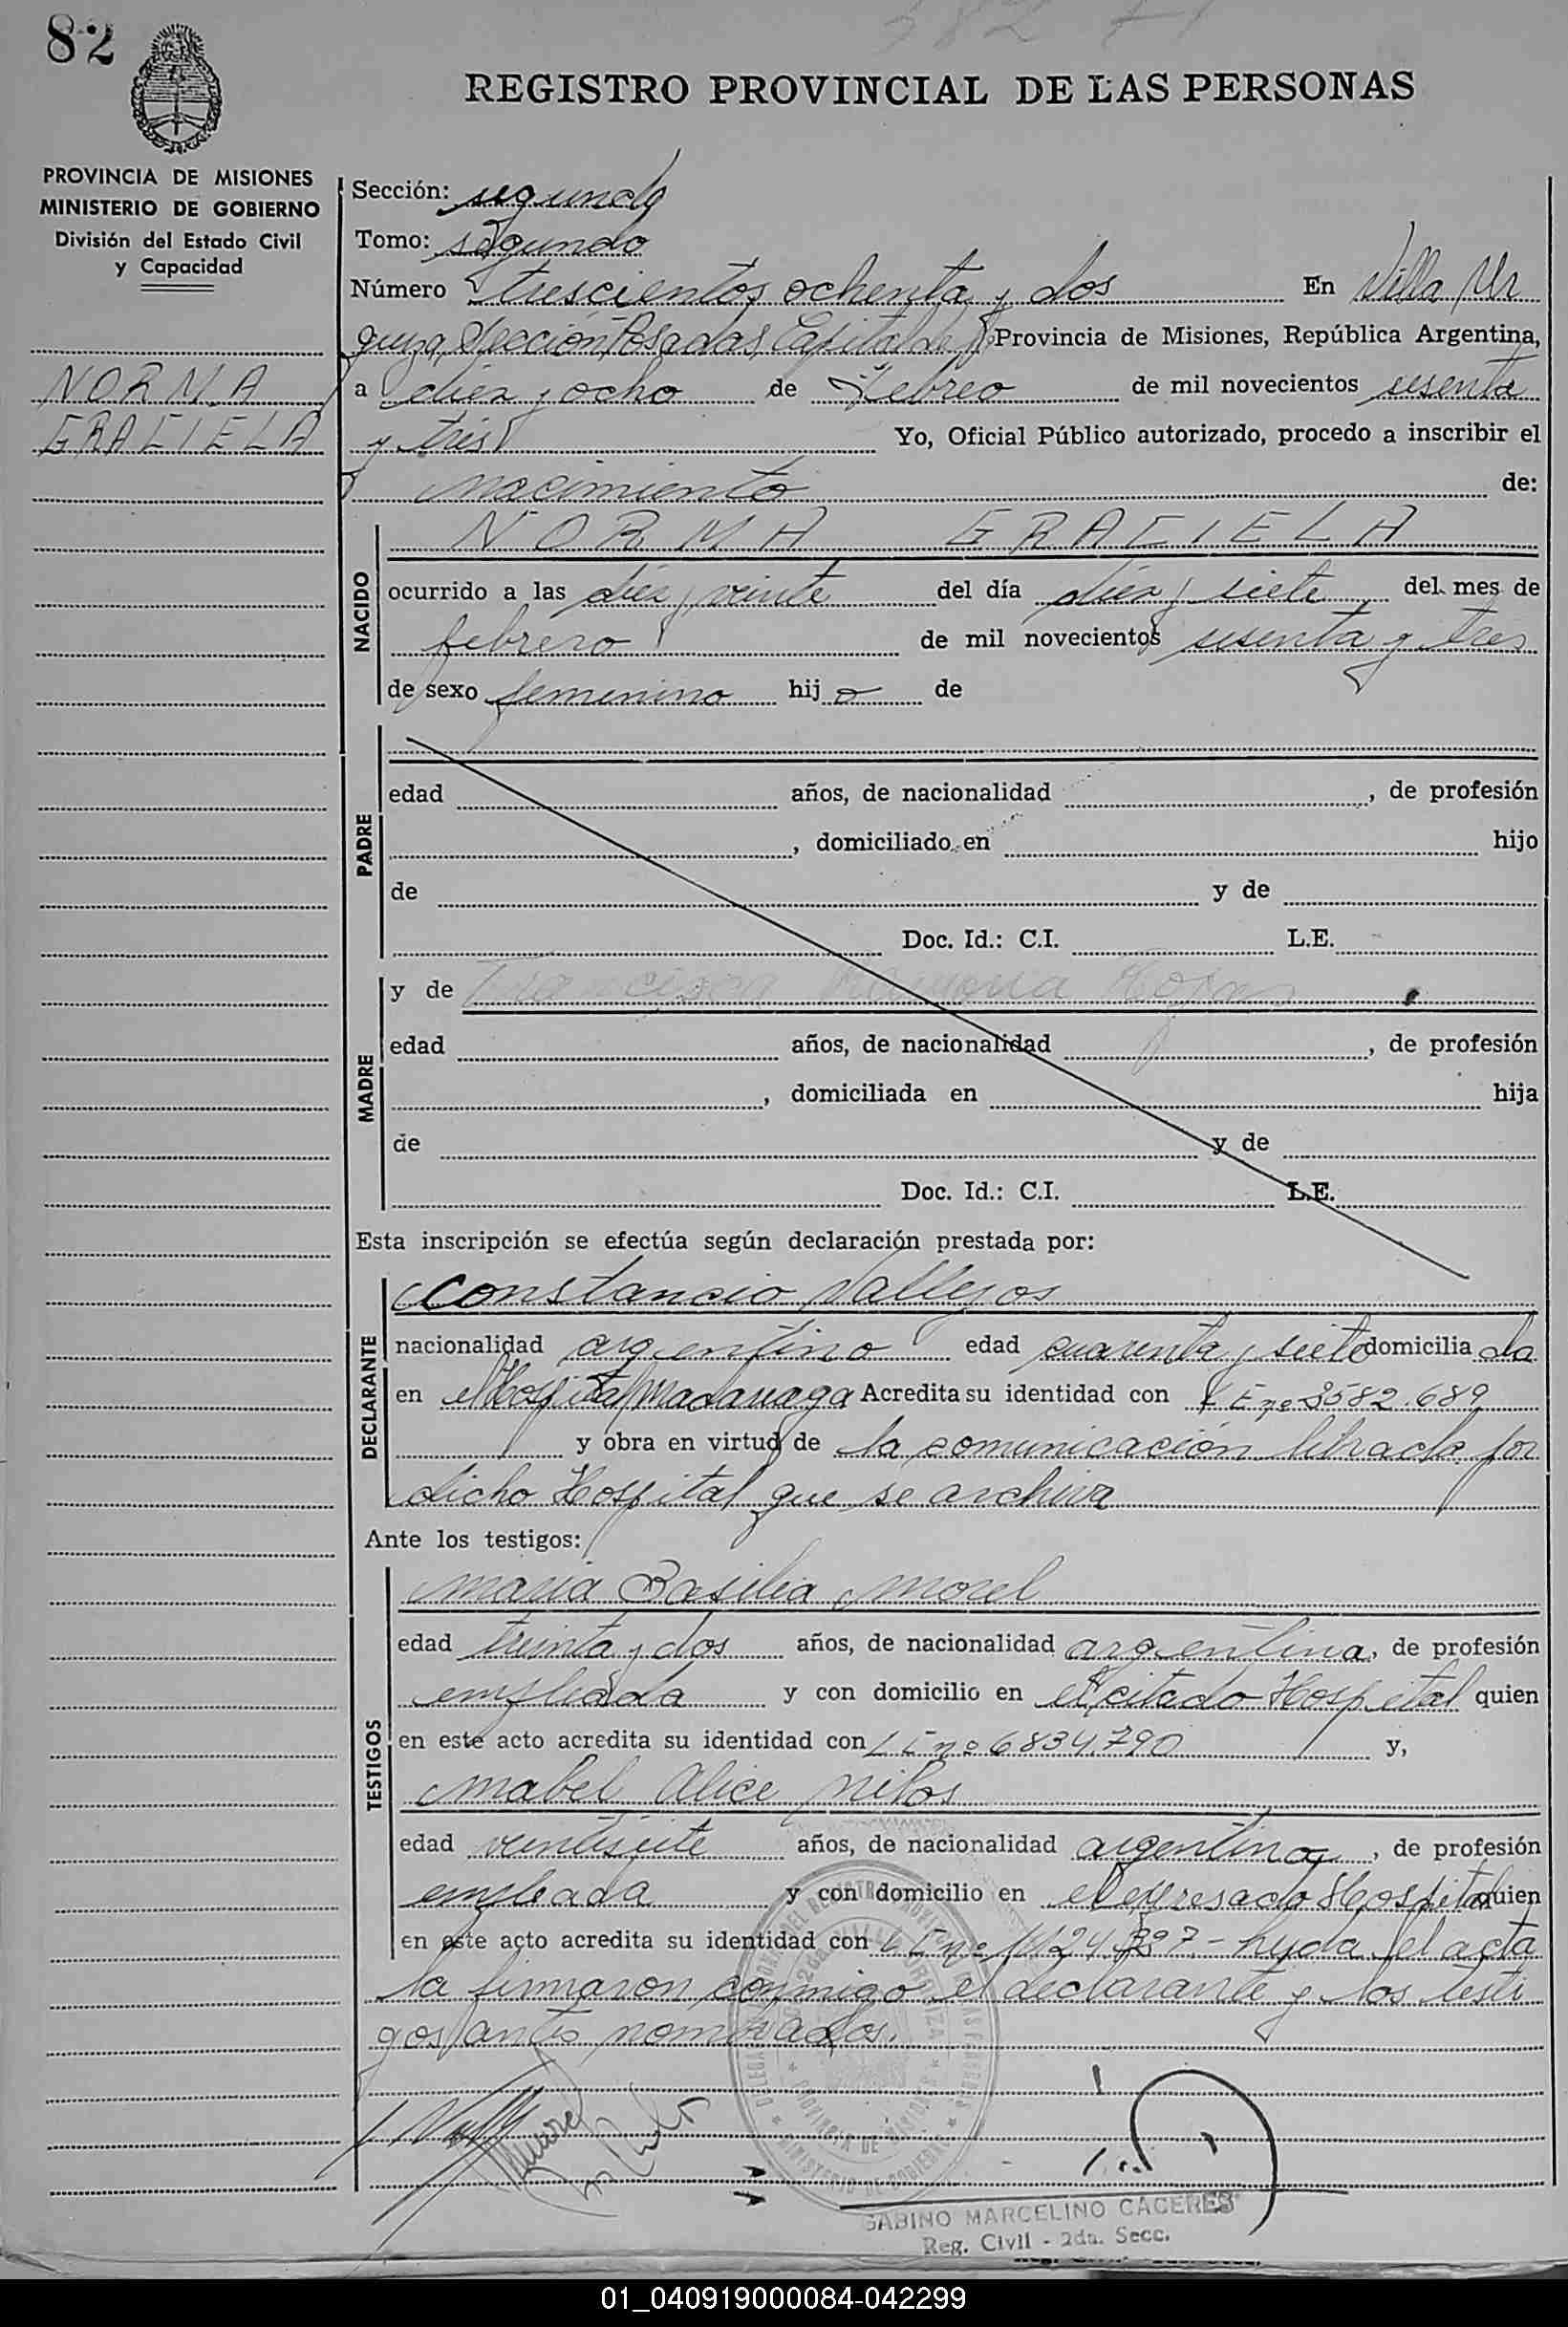 82
REGISTRO PROVINCIAL DE LAS PERSONAS
PROVINCIA DE MISIONES
MINISTERIO DE GOBIERNO
División del Estado Civil
y Capacidad
NORMA
GRACIELA
Sección: segunda
Tomo: segundo
Número trescientos ochenta y dos En Villa Ur
quiza, Sección Posadas, Capital de la Provincia de Misiones, República Argentina,
a diez y ocho de Febreo de mil novecientos sesenta
y tres Yo, Oficial Público autorizado, procedo a inscribir el
nacimiento de:
NACIDO
NORMA GRACIELA
ocurrido a las diez y veinte del día diez y siete del mes de
febrero de mil novecientos sesenta y tres
de sexo femenino hij a de
PADRE
edad años, de nacionalidad , de profesión
, domiciliado en hijo
de y de
Doc. Id.: C.I. L.E.
MADRE
y de Francisca Ramona Rojas
edad años, de nacionalidad , de profesión
, domiciliada en hija
de y de
Doc. Id.: C.I. L.E.
Esta inscripción se efectúa según declaración prestada por:
DECLARANTE
Constancio Vallejos
nacionalidad argentino edad cuarenta y siete domicilia da
en el Hospital Madariaga Acredita su identidad con L E nº 3582.689
y obra en virtud de la comunicación librada por
dicho Hospital que se archiva
Ante los testigos:
TESTIGOS
Maria Basilia Morel
edad treinta y dos años, de nacionalidad argentina, de profesión
empleada y con domicilio en el citado Hospital quien
en este acto acredita su identidad con L C nº 6834.790 y,
Mabel Alice
edad veintisiete años, de nacionalidad argentina, de profesión
empleada y con domicilio en el expresado Hospital quien
en este acto acredita su identidad con L C nº - leyda el acta
la firmaron conmigo el declarante y los testi
gos antes nombrados.
DELEGACION DEL REGISTRO PROVINCIAL DE LAS PERSONAS
PROVINCIA DE MISIONES
MINISTERIO DE GOBIERNO
GABINO MARCELINO CACERES
Reg. Civil - 2da. Secc.
01_040919000084-042299